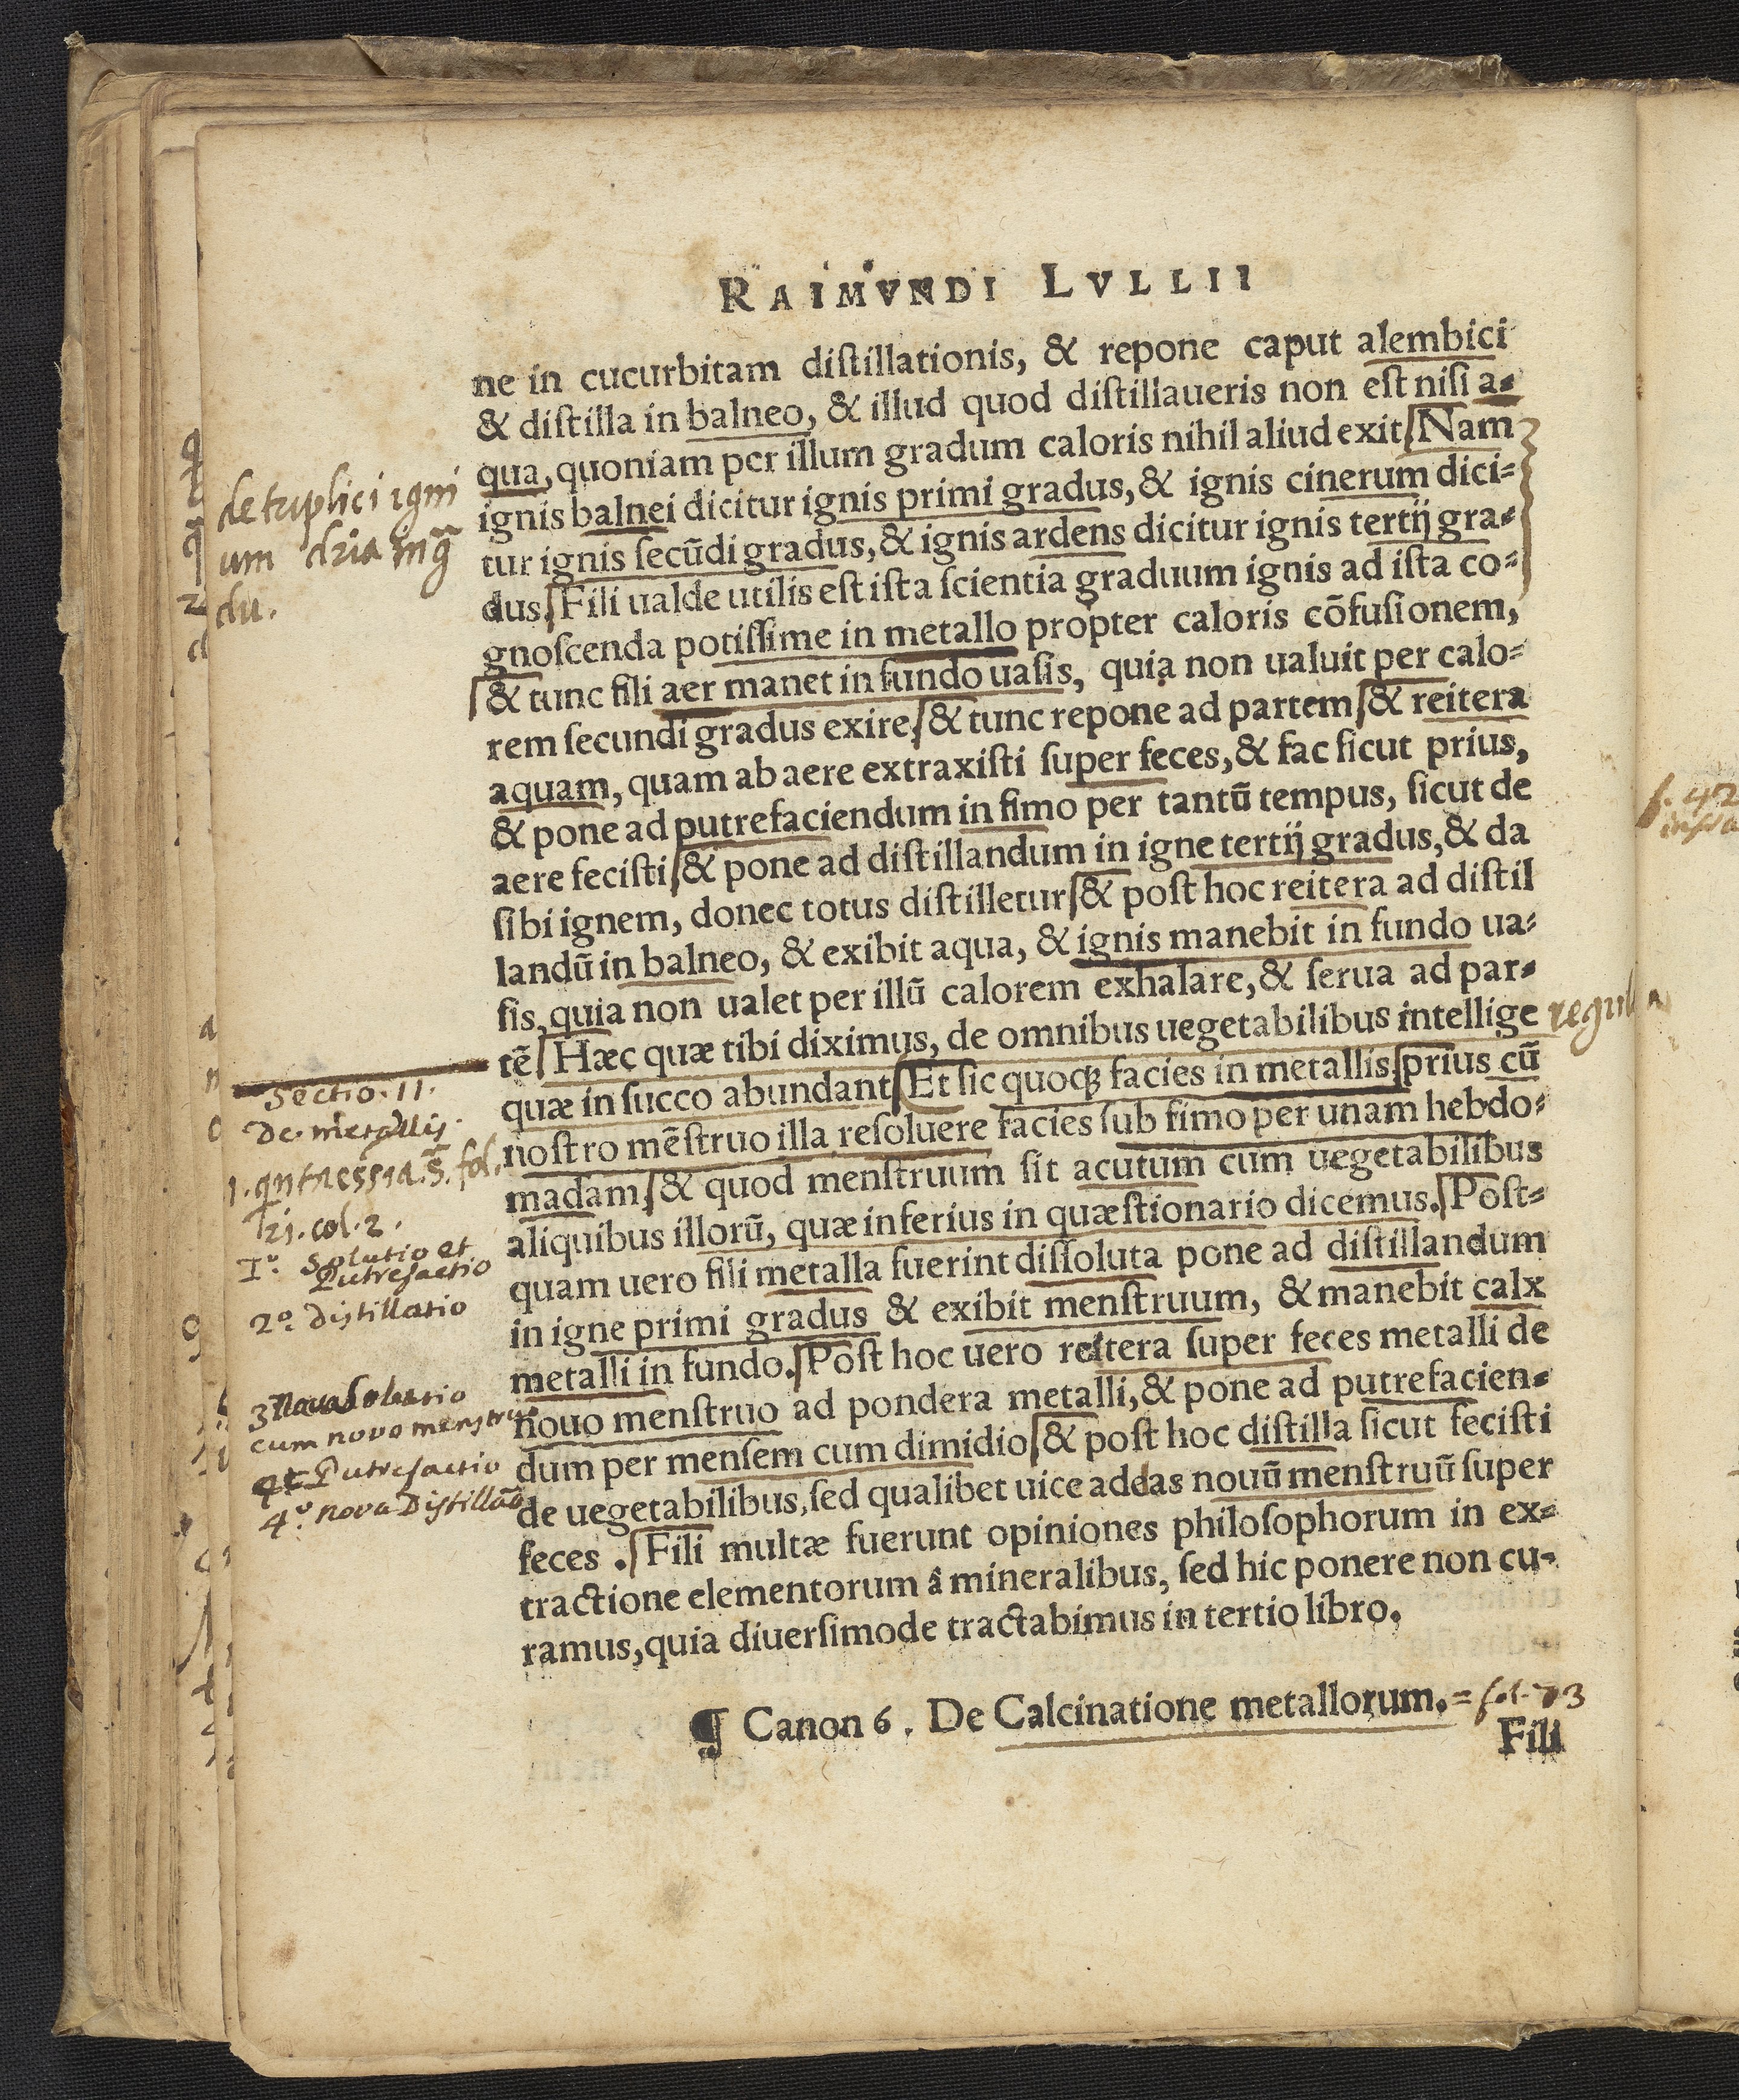 RAIMVNDI LVLLII
ne in cucurbitam diſtillationis, & repone caput alembici
& diſtilla in balneo, & illud quod diſtillaueris non eſt niſi a-
qua, quoniam per illum gradum caloris nihil aliud exit. Nam
ignis balnei dicitur ignis primi gradus, & ignis cinerum dici-
tur ignis ſecũdi gradus, & ignis ardens dicitur ignis tertij gra-
dus. Fili ualde utilis eſt iſta ſcientia graduum ignis ad iſta co-
gnoſcenda potiſſime in metallo propter caloris cõfuſionem,
& tunc fili aer manet in fundo uaſis, quia non ualuit per calo-
rem ſecundi gradus exire, & tunc repone ad partem & reitera
aquam, quam ab aere extraxiſti ſuper feces, & fac ſicut prius,
& pone ad putrefaciendum in fimo per tantũ tempus, ſicut de
aere feciſti & pone ad diſtillandum in igne tertij gradus, & da
ſibi ignem, donec totus diſtilletur & poſt hoc reitera ad diſtil
landũ in balneo, & exibit aqua, & ignis manebit in fundo ua-
ſis, quia non ualet per illũ calorem exhalare, & ſerua ad par-
tẽ. Hæc quæ tibi diximus, de omnibus uegetabilibus intellige
quæ in ſucco abundant. Et ſic quoqꝫ facies in metallis, prius cũ
noſtro mẽſtruo illa reſoluere facies ſub fimo per unam hebdo-
madam, & quod menſtruum ſit acutum cum uegetabilibus
aliquibus illorũ, quæ inferius in quæſtionario dicemus. Poſt-
quam uero fili metalla fuerint diſſoluta pone ad diſtillandum
in igne primi gradus & exibit menſtruum, & manebit calx
metalli in fundo. Poſt hoc uero reitera ſuper feces metalli de
nouo menſtruo ad pondera metalli, & pone ad putrefacien-
dum per menſem cum dimidio & poſt hoc diſtilla ſicut feciſti
de uegetabilibus, ſed qualibet uice addas nouũ menſtruũ ſuper
feces. Fili multæ fuerunt opiniones philoſophorum in ex-
tractione elementorum â mineralibus, ſed hic ponere non cu-
ramus, quia diuerſimode tractabimus in tertio libro.
¶ Canon 6. De Calcinatione metallorum. = fol. 73
Fili
de triplici igni
um dria
du.
regula
Sectio. 11.
De metallis.
fol.
21. col. 2.
1º. Solutio et
Putrefactio
2º. Distillatio
3 Nova Solutio
cum novo menstruo
et Putrefactio
4º. nova Distillaõ
f. 42
infra